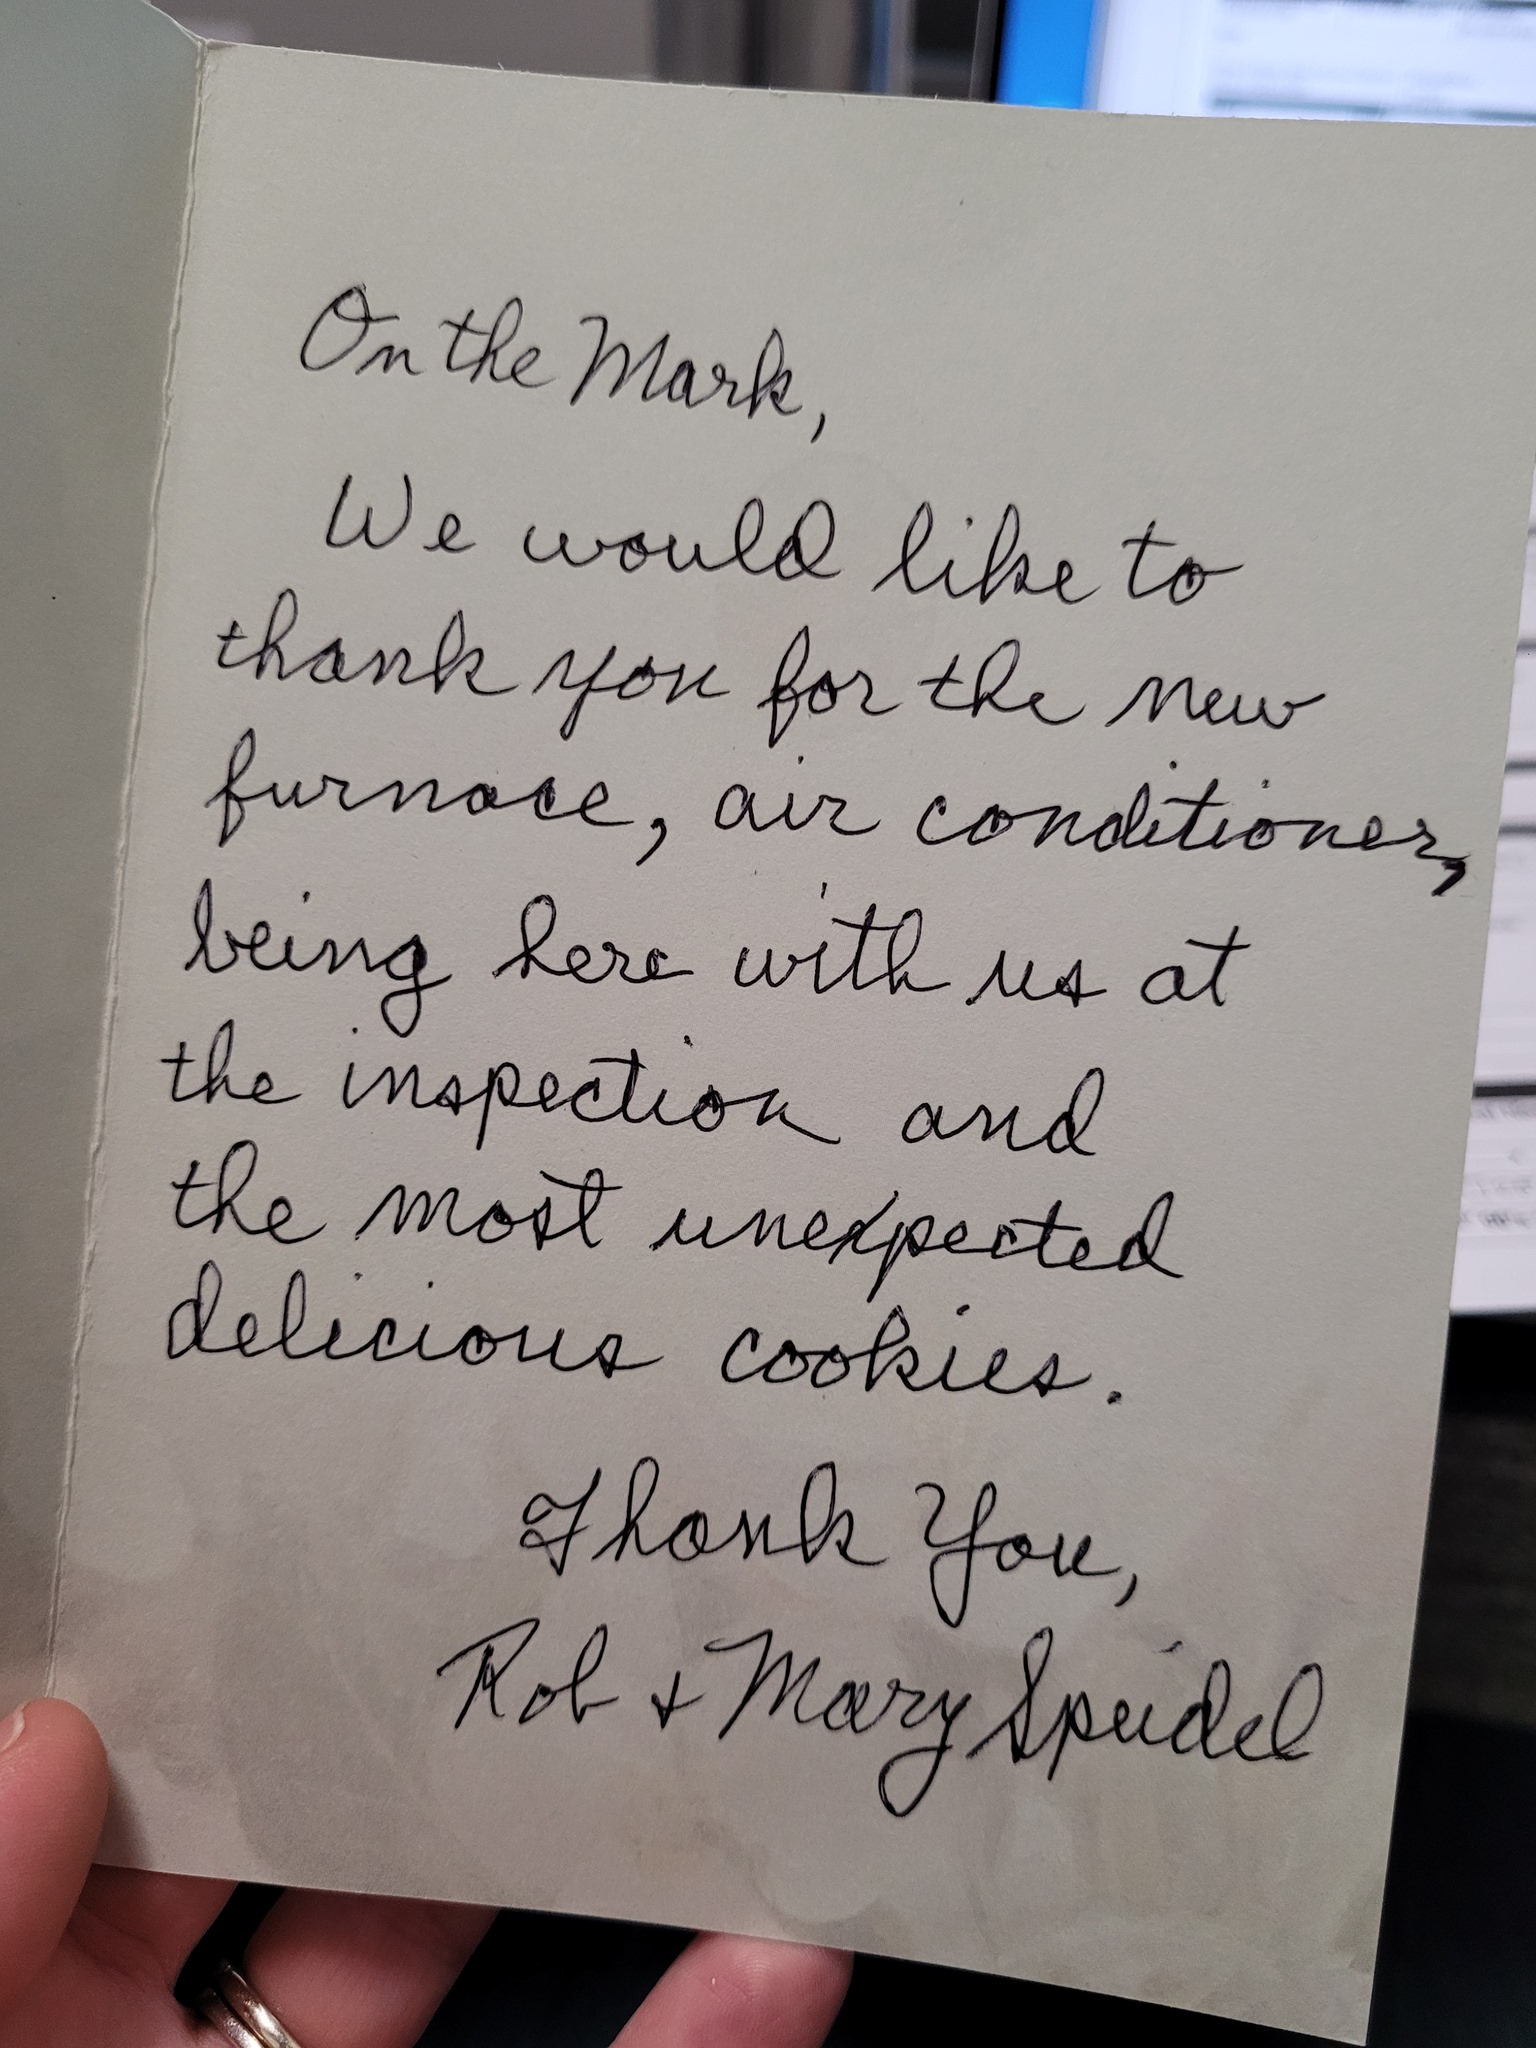 On the Mark,
We would like to
thank you for the new
furnace, air conditioner,
being here with us at
the inspection and
the most unexpected
delicious cookies.
Thank You,
Rob + Mary Speidel